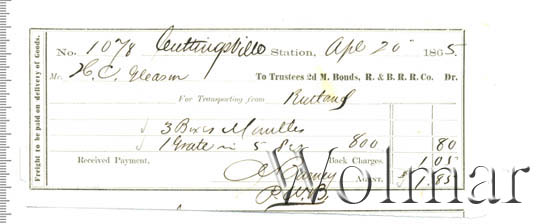 Freight to be paid on delivery of Goods.
No. 1078 Cuttingsville Station, Apl 20 1865
Mr. H. C. Gleason To Trustees 2d M. Bonds, R. & B. R. R. Co. Dr.
For Transporting from Rutland
3 Boxes 800 80
1 Grate
Received Payment, Back Charges. 1.05
Agent. $1.85
Wolmar